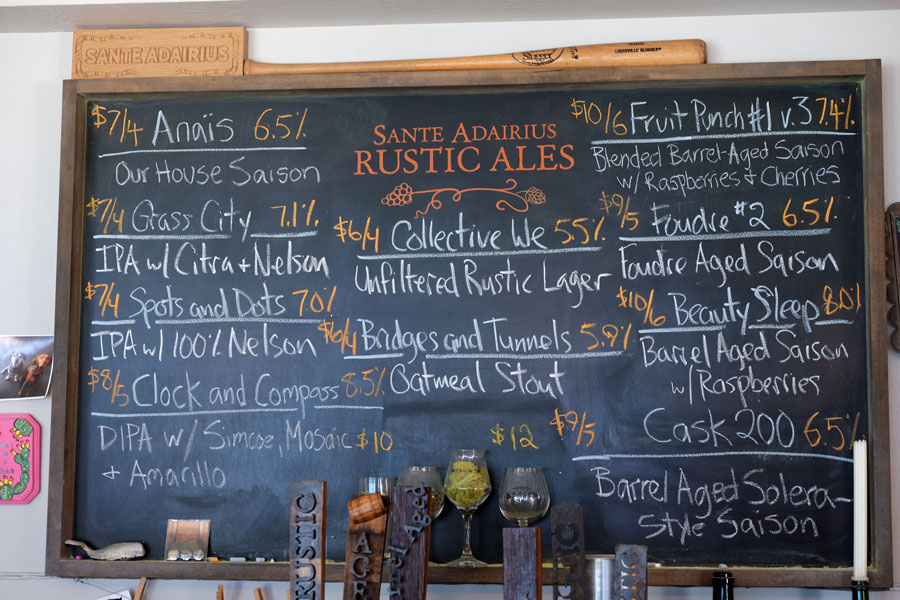 SANTE ADAIRIUS
Slugger
LOUISVILLE SLUGGER
$7/4 Anaïs 6.5%
Our House Saison
$7/4 Grass City 7.1%
IPA w/ Citra + Nelson
$7/4 Spots and Dots 7.0%
IPA w/ 100% Nelson
$8/5 Clock and Compass 8.5%
DIPA w/ Simcoe, Mosaic
+ Amarillo
SANTE ADAIRIUS
RUSTIC ALES
$6/4 Collective We 5.5%
Unfiltered Rustic Lager
$6/4 Bridges and Tunnels 5.9%
Oatmeal Stout
$10
$12
$10/6 Fruit Punch #1 v.3 7.4%
Blended Barrel-Aged Saison
w/ Raspberries + Cherries
$9/5 Foudre #2 6.5%
Foudre Aged Saison
$10/6 Beauty Sleep 8.0%
Barrel Aged Saison
w/ Raspberries
$9/5 Cask 200 6.5%
Barrel Aged Solera-
Style Saison
RUSTIC
Aged